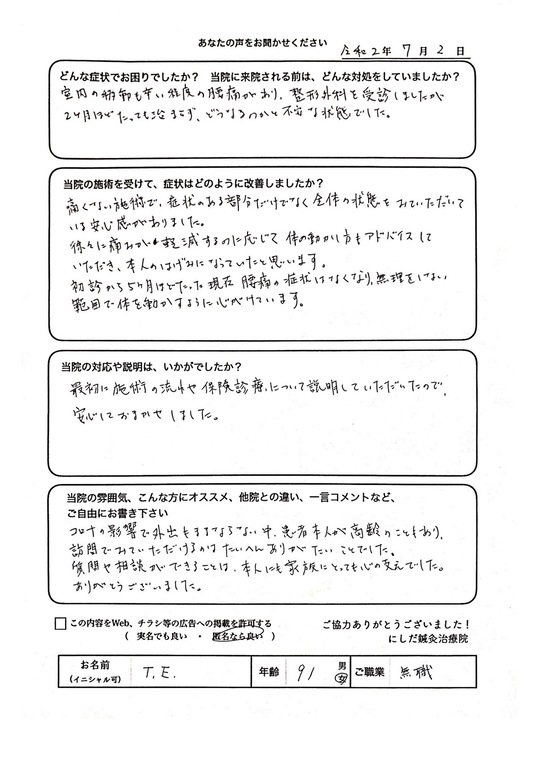 あなたの声をお聞かせください
令和2年 7月 2日
どんな症状でお困りでしたか？ 当院に来院される前は、どんな対処をしていましたか？
室内の移動も辛い程度の腰痛があり、整形外科を受診しましたが
2ヶ月ほどたっても治まらず、どうなるのかと不安な状態でした。
当院の施術を受けて、症状はどのように改善しましたか？
痛くない施術で、症状のある部分だけでなく全体の状態をみていただいて
いる安心感がありました。
徐々に痛みが軽減するのに応じて体の動かし方もアドバイスして
いただき、本人のはげみになっていたと思います。
初診から5ヶ月ほどたった現在 腰痛の症状はなくなり、無理をしない
範囲で体を動かすように心がけています。
当院の対応や説明は、いかがでしたか？
最初に施術の流れや保険診療について説明していただいたので、
安心しておまかせしました。
当院の雰囲気、こんな方にオススメ、他院との違い、一言コメントなど、
ご自由にお書き下さい
コロナの影響で外出もままならない中、患者本人が高齢のこともあり、
訪問でみていただけるのはたいへんありがたいことでした。
質問や相談ができることは、本人にも家族にとっても心の支えでした。
ありがとうございました。
□ この内容をWeb、チラシ等の広告への掲載を許可する
（ 実名でも良い ・ 匿名なら良い ）
ご協力ありがとうございました！
にしだ鍼灸治療院
お名前
（イニシャル可）
T.E.
年齢
91
男
女
ご職業
無職